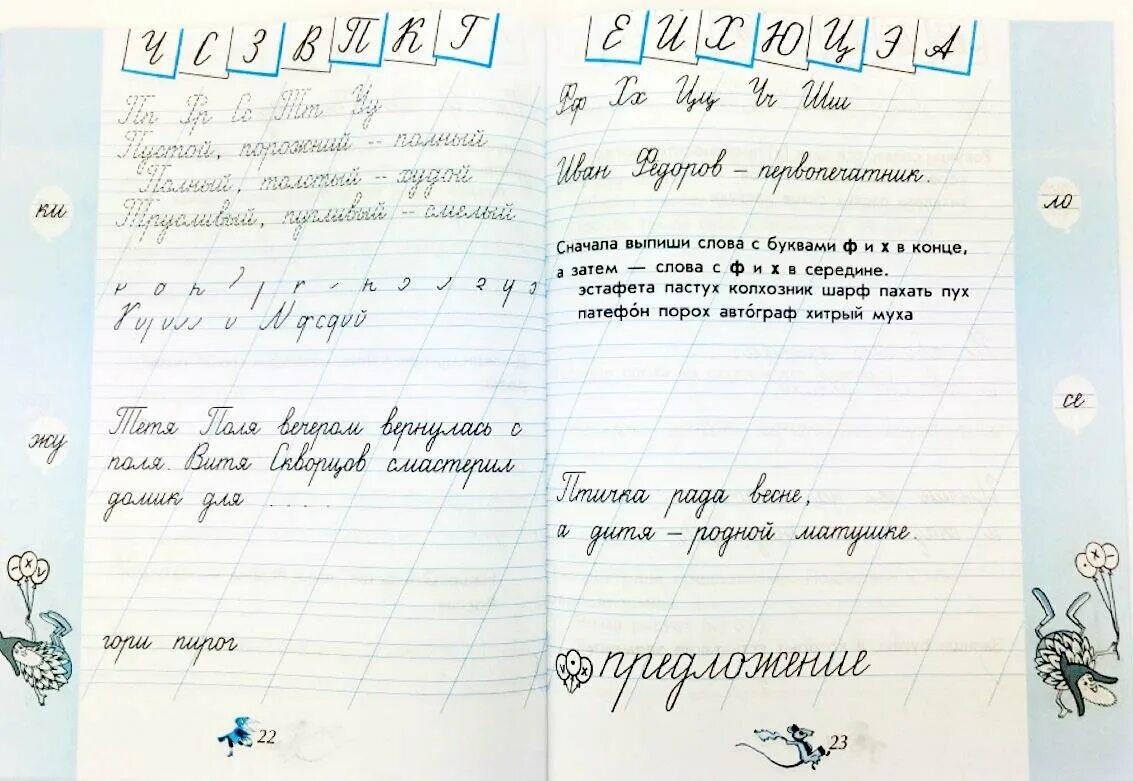 Ч С З В П К Г
Пп Рр Сс Тт Уу
Пустой, порожний – полный
Полный, толстый – худой
Трусливый, пугливый – смелый
ки
Тетя Поля вечером вернулась с
поля. Витя Скворцов смастерил
домик для .....
жу
гори пирог
22
Е И Х Ю Ц Э А
Фф Хх Цц Чч Шш
Иван Федоров – первопечатник.
ло
Сначала выпиши слова с буквами ф и х в конце,
а затем — слова с ф и х в середине.
эстафета пастух колхозник шарф пахать пух
патефо́н порох авто́граф хитрый муха
се
Птичка рада весне,
а дитя – родной матушке.
предложение
23